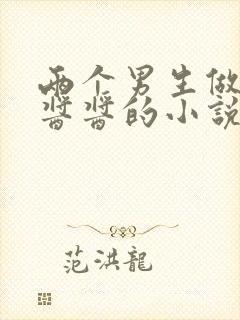 两个男生做
酱酱的小説
范洪龍